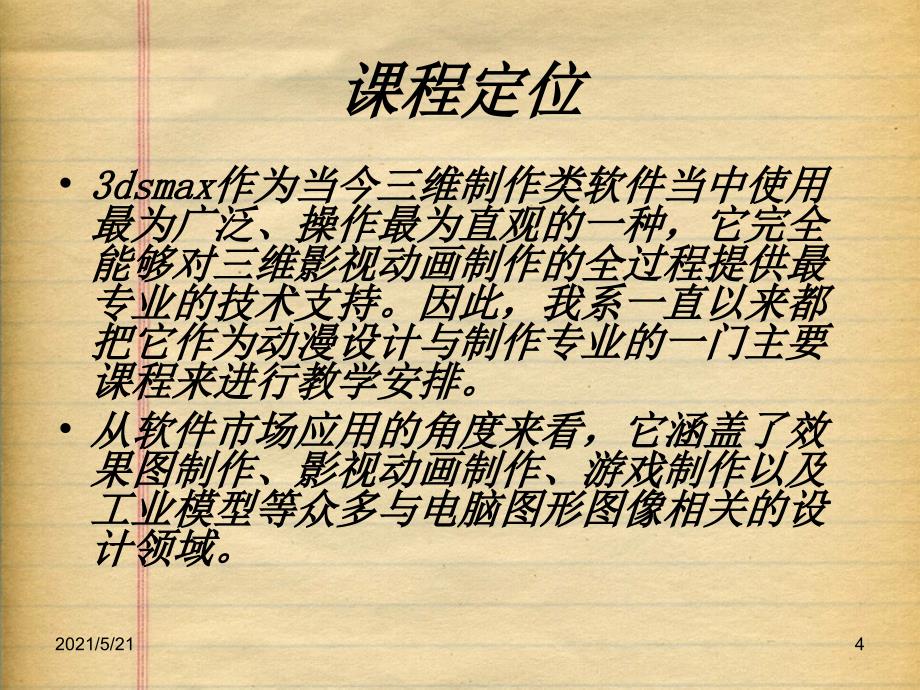 课程定位
• 3dsmax作为当今三维制作类软件当中使用
最为广泛、操作最为直观的一种，它完全
能够对三维影视动画制作的全过程提供最
专业的技术支持。因此，我系一直以来都
把它作为动漫设计与制作专业的一门主要
课程来进行教学安排。
• 从软件市场应用的角度来看，它涵盖了效
果图制作、影视动画制作、游戏制作以及
工业模型等众多与电脑图形图像相关的设
计领域。
2021/5/21
4